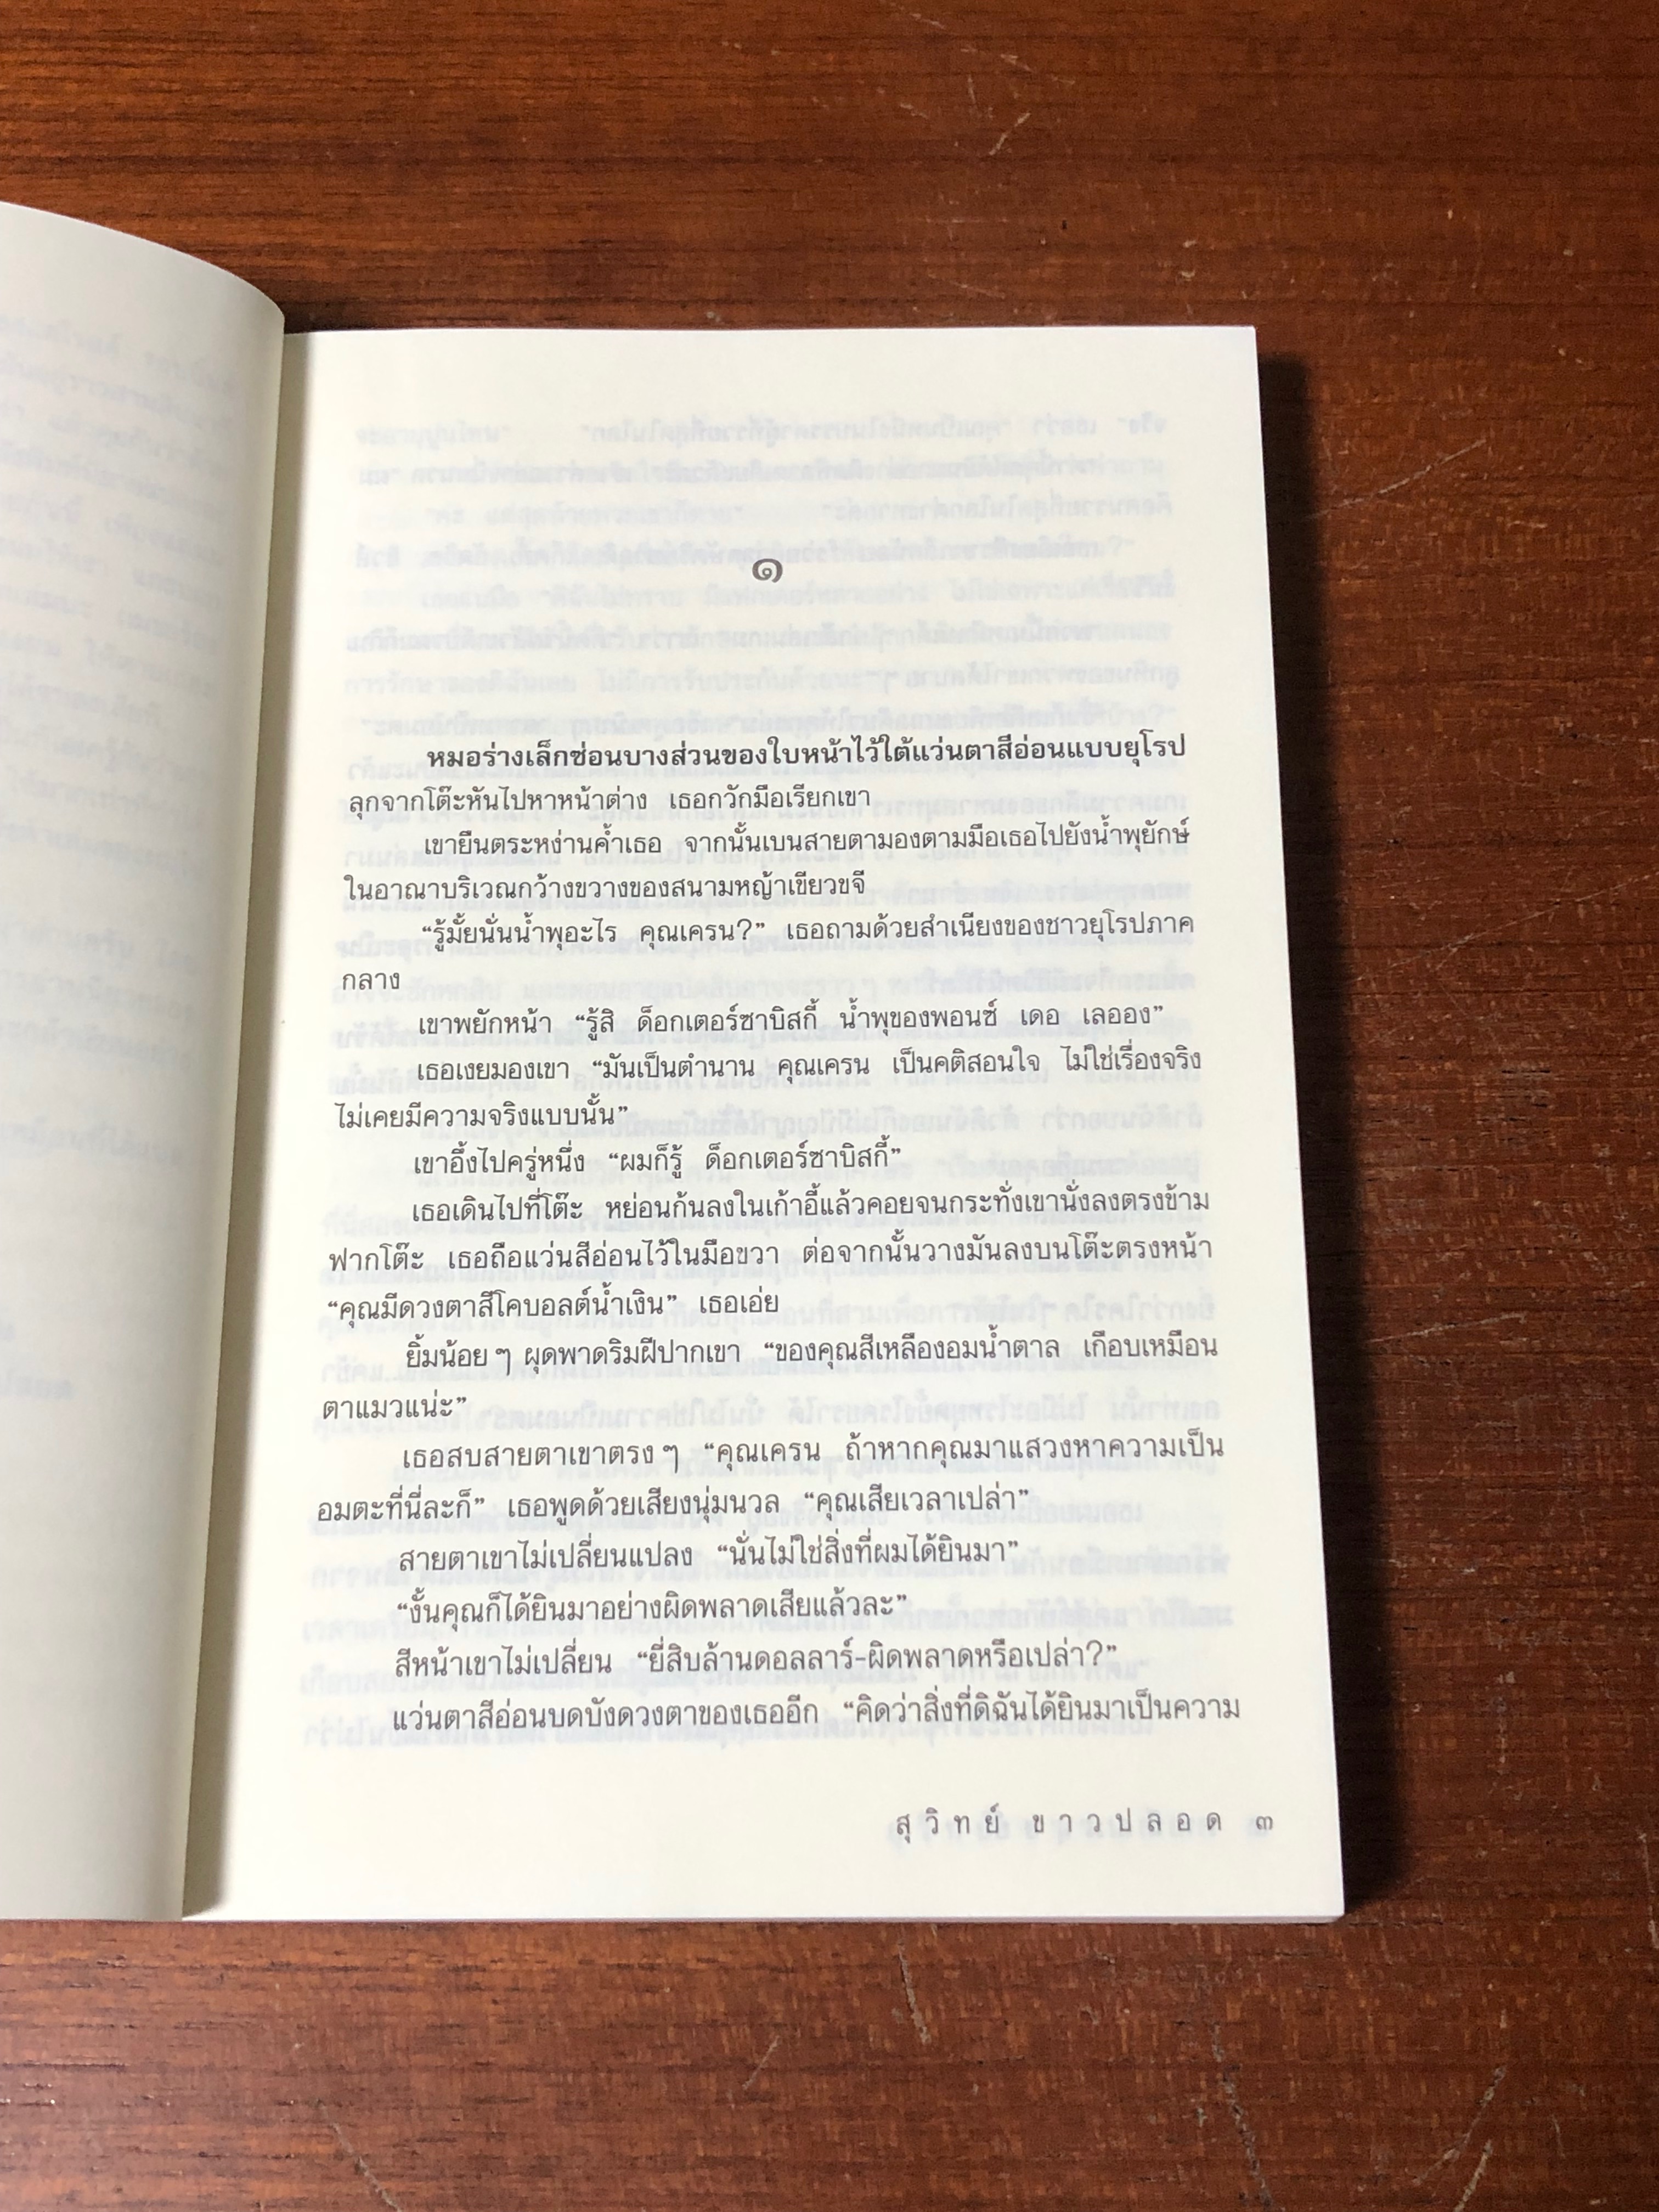 ๑
หมอร่างเล็กซ่อนบางส่วนของใบหน้าไว้ใต้แว่นตาสีอ่อนแบบยุโรป
ลุกจากโต๊ะหันไปหาหน้าต่าง เธอกวักมือเรียกเขา
เขายืนตระหง่านค้ำเธอ จากนั้นเบนสายตามองตามมือเธอไปยังน้ำพุยักษ์
ในอาณาบริเวณกว้างขวางของสนามหญ้าเขียวขจี
“รู้มั้ยนั่นน้ำพุอะไร คุณเครน?” เธอถามด้วยสำเนียงของชาวยุโรปภาค
กลาง
เขาพยักหน้า “รู้สิ ด็อกเตอร์ซาบิสกี้ น้ำพุของพอนซ์ เดอ เลออง”
เธอเงยมองเขา “มันเป็นตำนาน คุณเครน เป็นคติสอนใจ ไม่ใช่เรื่องจริง
ไม่เคยมีความจริงแบบนั้น”
เขาอึ้งไปครู่หนึ่ง “ผมก็รู้ ด็อกเตอร์ซาบิสกี้”
เธอเดินไปที่โต๊ะ หย่อนก้นลงในเก้าอี้แล้วคอยจนกระทั่งเขานั่งลงตรงข้าม
ฟากโต๊ะ เธอถือแว่นสีอ่อนไว้ในมือขวา ต่อจากนั้นวางมันลงบนโต๊ะตรงหน้า
“คุณมีดวงตาสีโคบอลต์น้ำเงิน” เธอเอ่ย
ยิ้มน้อย ๆ ผุดพาดริมฝีปากเขา “ของคุณสีเหลืองอมน้ำตาล เกือบเหมือน
ตาแมวแน่ะ”
เธอสบสายตาเขาตรง ๆ “คุณเครน ถ้าหากคุณมาแสวงหาความเป็น
อมตะที่นี่ละก็” เธอพูดด้วยเสียงนุ่มนวล “คุณเสียเวลาเปล่า”
สายตาเขาไม่เปลี่ยนแปลง “นั่นไม่ใช่สิ่งที่ผมได้ยินมา”
“งั้นคุณก็ได้ยินมาอย่างผิดพลาดเสียแล้วละ”
สีหน้าเขาไม่เปลี่ยน “ยี่สิบล้านดอลลาร์-ผิดพลาดหรือเปล่า?”
แว่นตาสีอ่อนบดบังดวงตาของเธออีก “คิดว่าสิ่งที่ดิฉันได้ยินมาเป็นความ
สุวิทย์ ขาวปลอด ๓